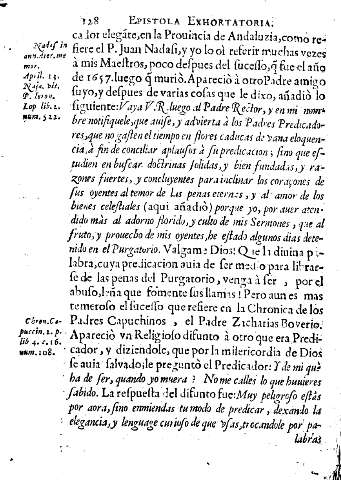 128 EPISTOLA EXHORTATORIA.
calor elegáte, en la Prouincia de Andaluzia, como re-
fiere el P. Juan Nadasi, y yo lo oì referir muchas vezes
à mis Maestros, poco despues del sucesso, q̃ fue el año
de 1657. luego q̃ muriò. Apareciò à otro Padre amigo
suyo, y despues de varias cosas que le dixo, añadiò lo
siguiente: Vaya V. R. luego al Padre Rector, y en mi nom-
bre notifiquele, que auise, y advierta à los Padres Predicado-
res, que no gasten el tiempo en flores caducas de vana eloquen-
cia, à fin de conciliar aplausos à su predicacion; sino que es-
tudien en buscar doctrinas solidas, y bien fundadas, y ra-
zones fuertes, y concluyentes para inclinar los coraçones de
sus oyentes al temor de las penas eternas, y al amor de los
bienes celestiales (aqui añadiò) porque yo, por auer aten-
dido màs al adorno florido, y culto de mis Sermones, que al
fruto, y prouecho de mis oyentes, he estado algunos dias dete-
nido en el Purgatorio. Valgame Dios! Que la divina pa-
labra, cuya predicacion auia de ser medio para librar-
se de las penas del Purgatorio, venga à ser, por el
abuso, leña que fomente sus llamas! Pero aun es mas
temeroso el sucesso que refiere en la Chronica de los
Padres Capuchinos, el Padre Zacharias Boverio.
Apareciò va Religioso difunto à otro que era Predi-
cador, y diziendole, que por la misericordia de Dios
se auia salvado, le preguntò el Predicador: Y de mi què
ha de ser, quando yo muera? No me calles lo que huuieres
sabido. La respuesta del difunto fue: Muy peligroso estàs
por aora, sino enmiendas tu modo de predicar, dexando la
elegancia, y lenguage curioso de que vsas, trocandole por pa-
labras
Nadas. in
ann. dier. me
mor.
April. 13.
Naja. vit.
P.
Lop lib. 2.
num. 522.
Chron. Ca-
puccin. 2. p.
lib 4. c. 16.
num. 208.